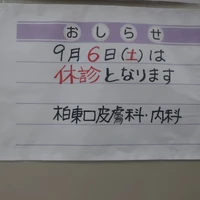 おしらせ
9月6日(土)は
休診となります
柏東口皮膚科・内科